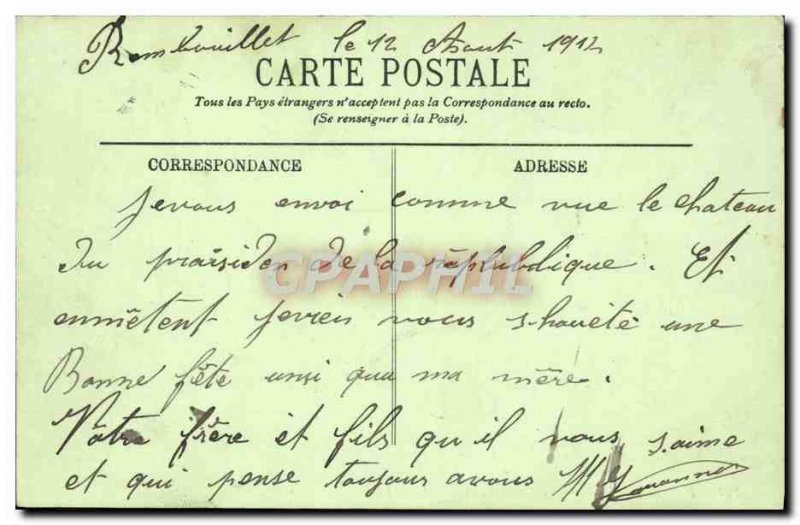 Rambouillet le 12 Aout 1912
CARTE POSTALE
Tous les Pays étrangers n'acceptent pas la Correspondance au recto.
(Se renseigner à la Poste).
CORRESPONDANCE ADRESSE
Je vous envoi comme vue le chateau
du praísiden de la républdique. Et
enmêtent jevien vous shouété une
Bonne fête ansi qua ma mère.
Vôtre frère et fils qu il vous s.aime
et qui pense toujours avous M
CPAPHIL